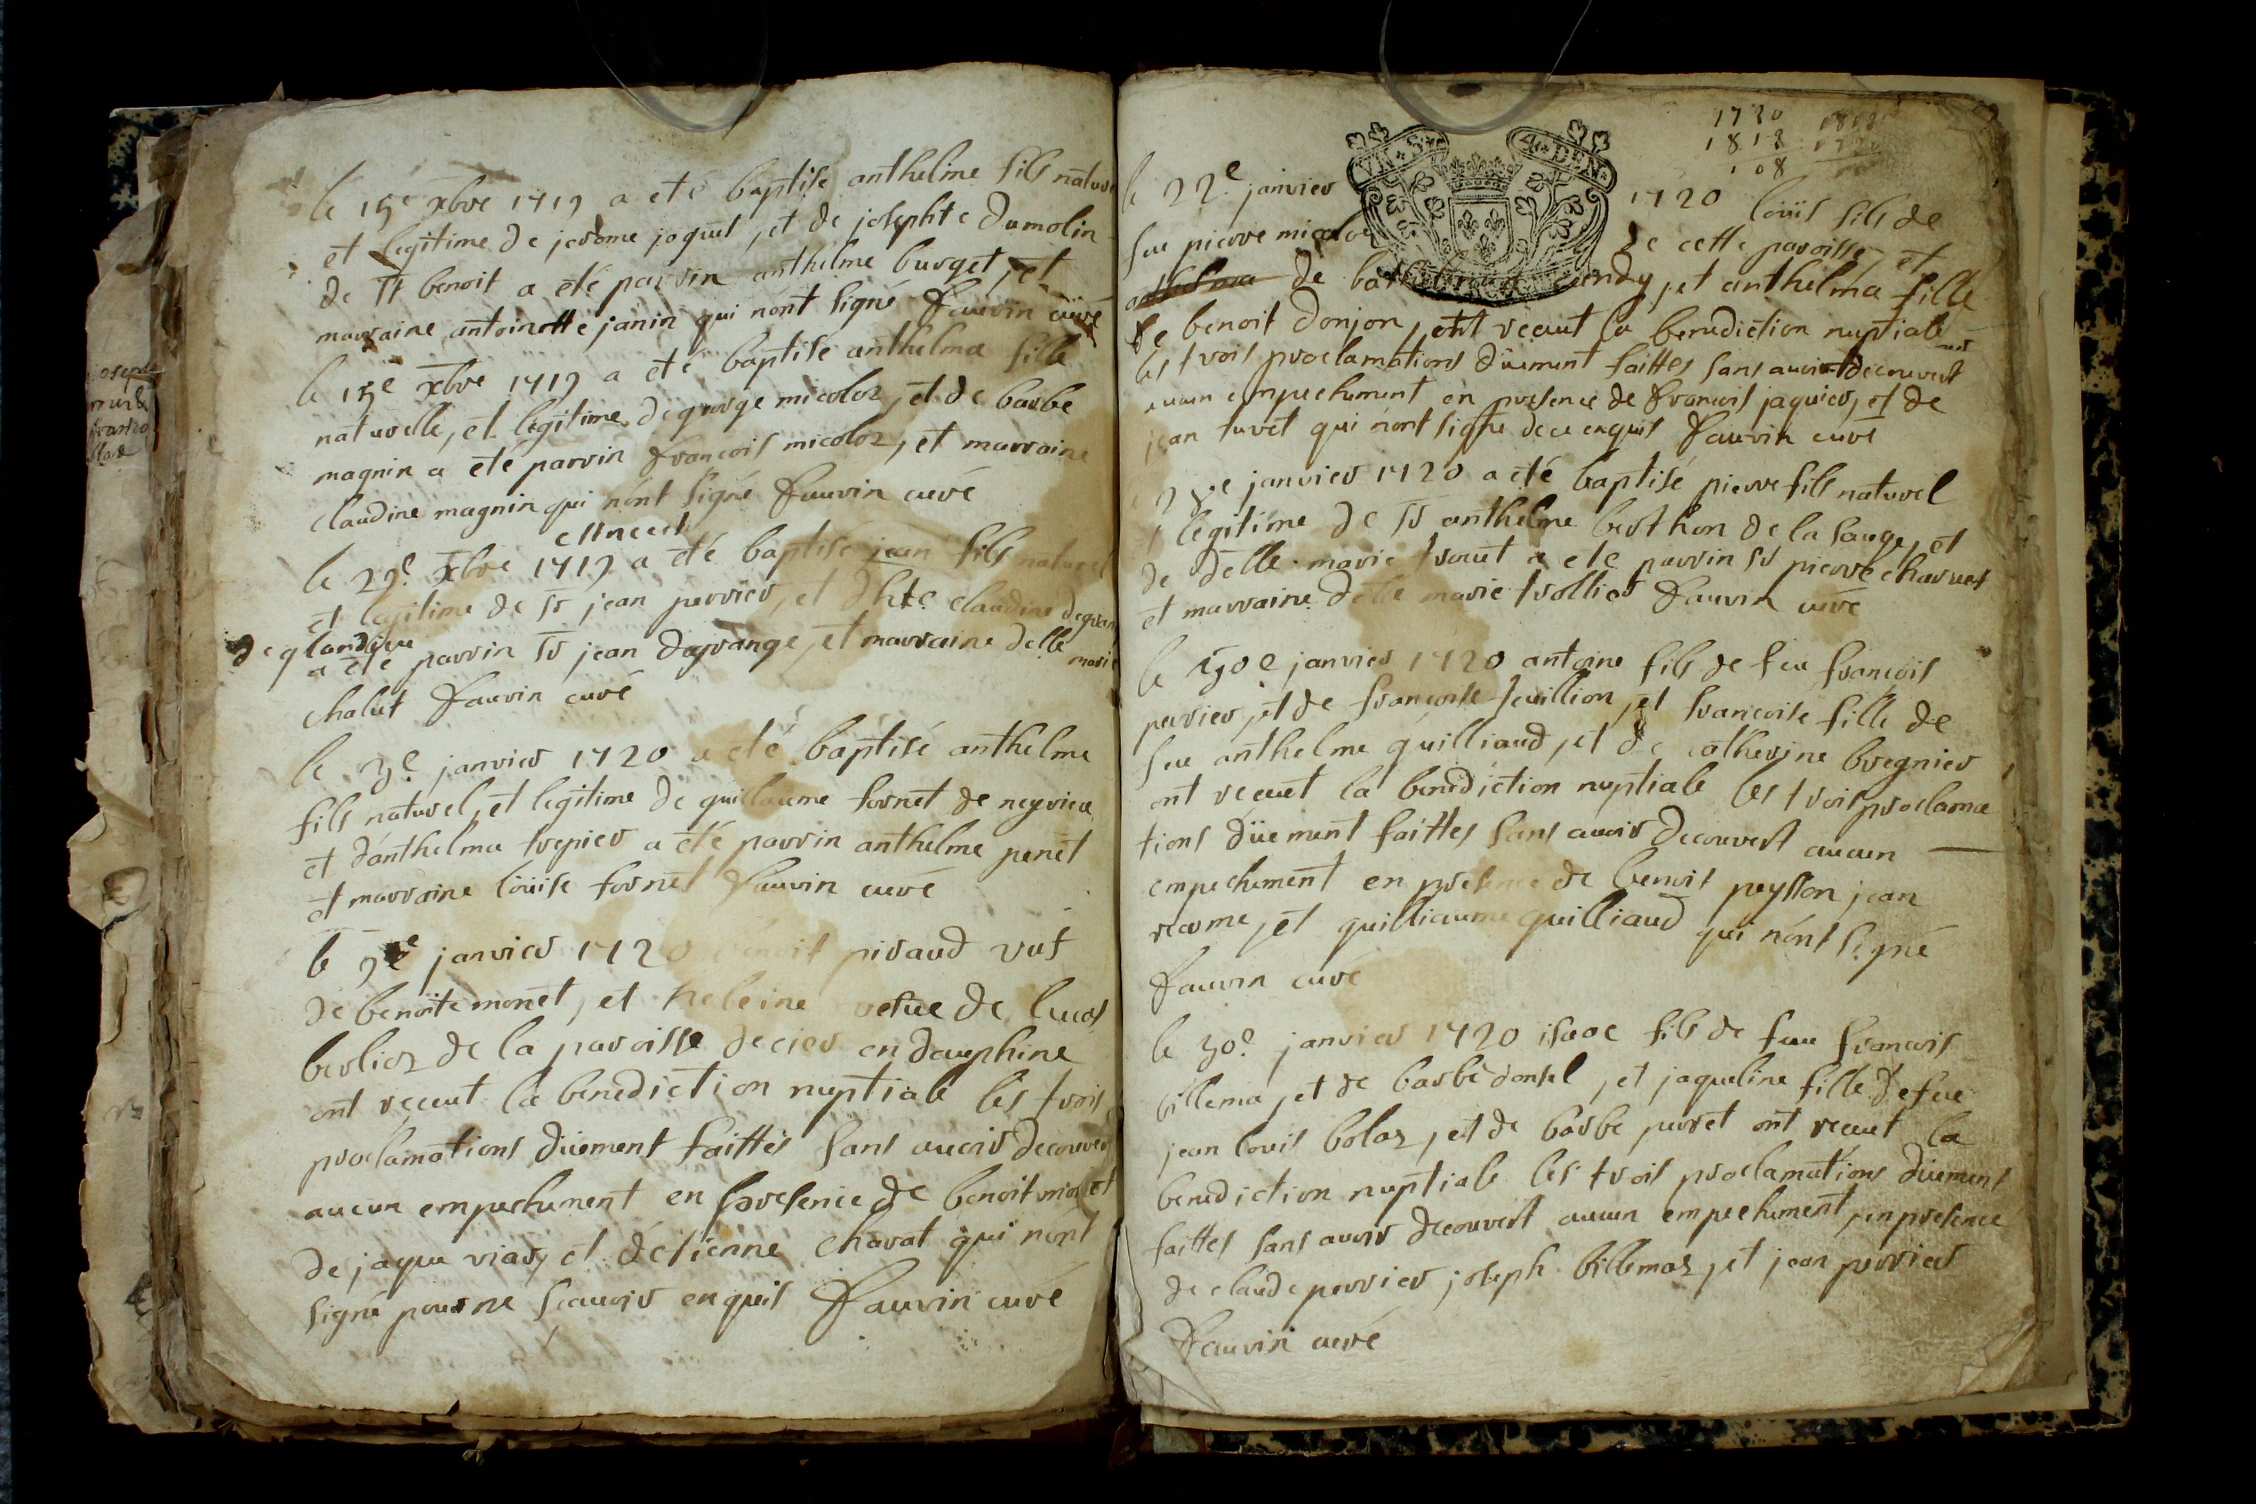 le 15e xbre 1719 a eté baptise anthelme fils nature
et legitime de jerome joquet, et de josephte dumolin
de st benoit a eté parrin anthelme burget, et
marraine antoinette janin qui nont signé fauvin curé
le 15e xbre 1719 a eté baptise anthelma fille
naturelle, et legitime de george micoloz, et de barbe
magnin a eté parrin francois micoloz, et marraine
claudine magnin qui nont signé fauvin curé
le 29e xbre 1719 a eté baptisé jean fils naturel
et legitime de sr jean perrier, et claudine
de glandieu
a eté parrin sr jean dagrange, et marraine delle marie
chalut fauvin curé
le 3e janvier 1720 a eté baptisé anthelme
fils naturel, et legitime de guillaume fornet de neyrieu
et danthelma trepier a eté parrin anthelme penet
et marraine loüise fornet fauvin curé
le 9e janvier 1720 benoit piraud vuf
de benoite monet, et heleine vefue de lucas
berlioz de la paroisse decier en dauphine
ont receut la benediction nuptiale les trois
proclamations düement faittes sans auoir decouvert
aucun empechement en presence de benoit et
de jaque viary et détienne charat qui nont
signé pour ne scauoir enquis fauvin curé
1720
1818
108
VN S
4 DEN
le 22e janvier 1720 loüis fils de
feu pierre micoloz de cette paroisse et
de et anthelma fille
de benoit donjon, ont receut la benediction nuptiale
les trois proclamations düement faittes sans auoir decouvert
aucun empechement en presence de francois jaquier, et de
jean turet qui nont signe de ce enquis fauvin curé
janvier 1720 a eté baptisé pierre fils naturel
et legitime de sr anthelme berthon de la sauge, et
de delle marie trouet a eté parrin sr pierre charuet
et marraine delle marie trollier fauvin curé
le 30e janvier 1720 antoine fils de feu francois
perrier, et de francoise feuillion, et francoise fille de
feu anthelme guilliaud, et de catherine bregnier
ont receut la benediction nuptiale les trois proclama
tions düement faittes sans auoir decouvert aucun
empechement en presence de benoit peysson jean
reome, et guilliaume guilliaud qui nont signé
fauvin curé
le 30e janvier 1720 isaac fils de feu francois
billema, et de barbe donsel, et jaqueline fille de feu
jean louis boloz, et de barbe puret ont receut la
benediction nuptiale les trois proclamations düement
faittes sans auoir decouvert aucun empechement, en presence
de claude perrier joseph billemaz, et jean perrier
fauvin curé